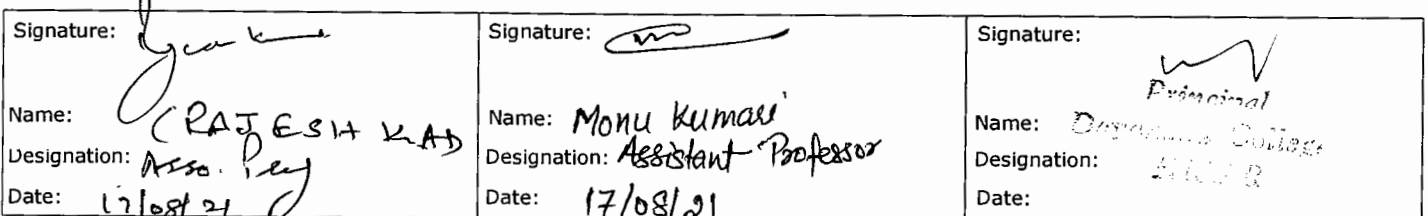 Signature:
Name: (RAJESH KAD
Designation: Asso.
Date: 17/08/21
Signature:
Name: Monu Kumari
Designation: Assistant Professor
Date: 17/08/21
Signature:
Principal
Name: College
Designation:
Date: